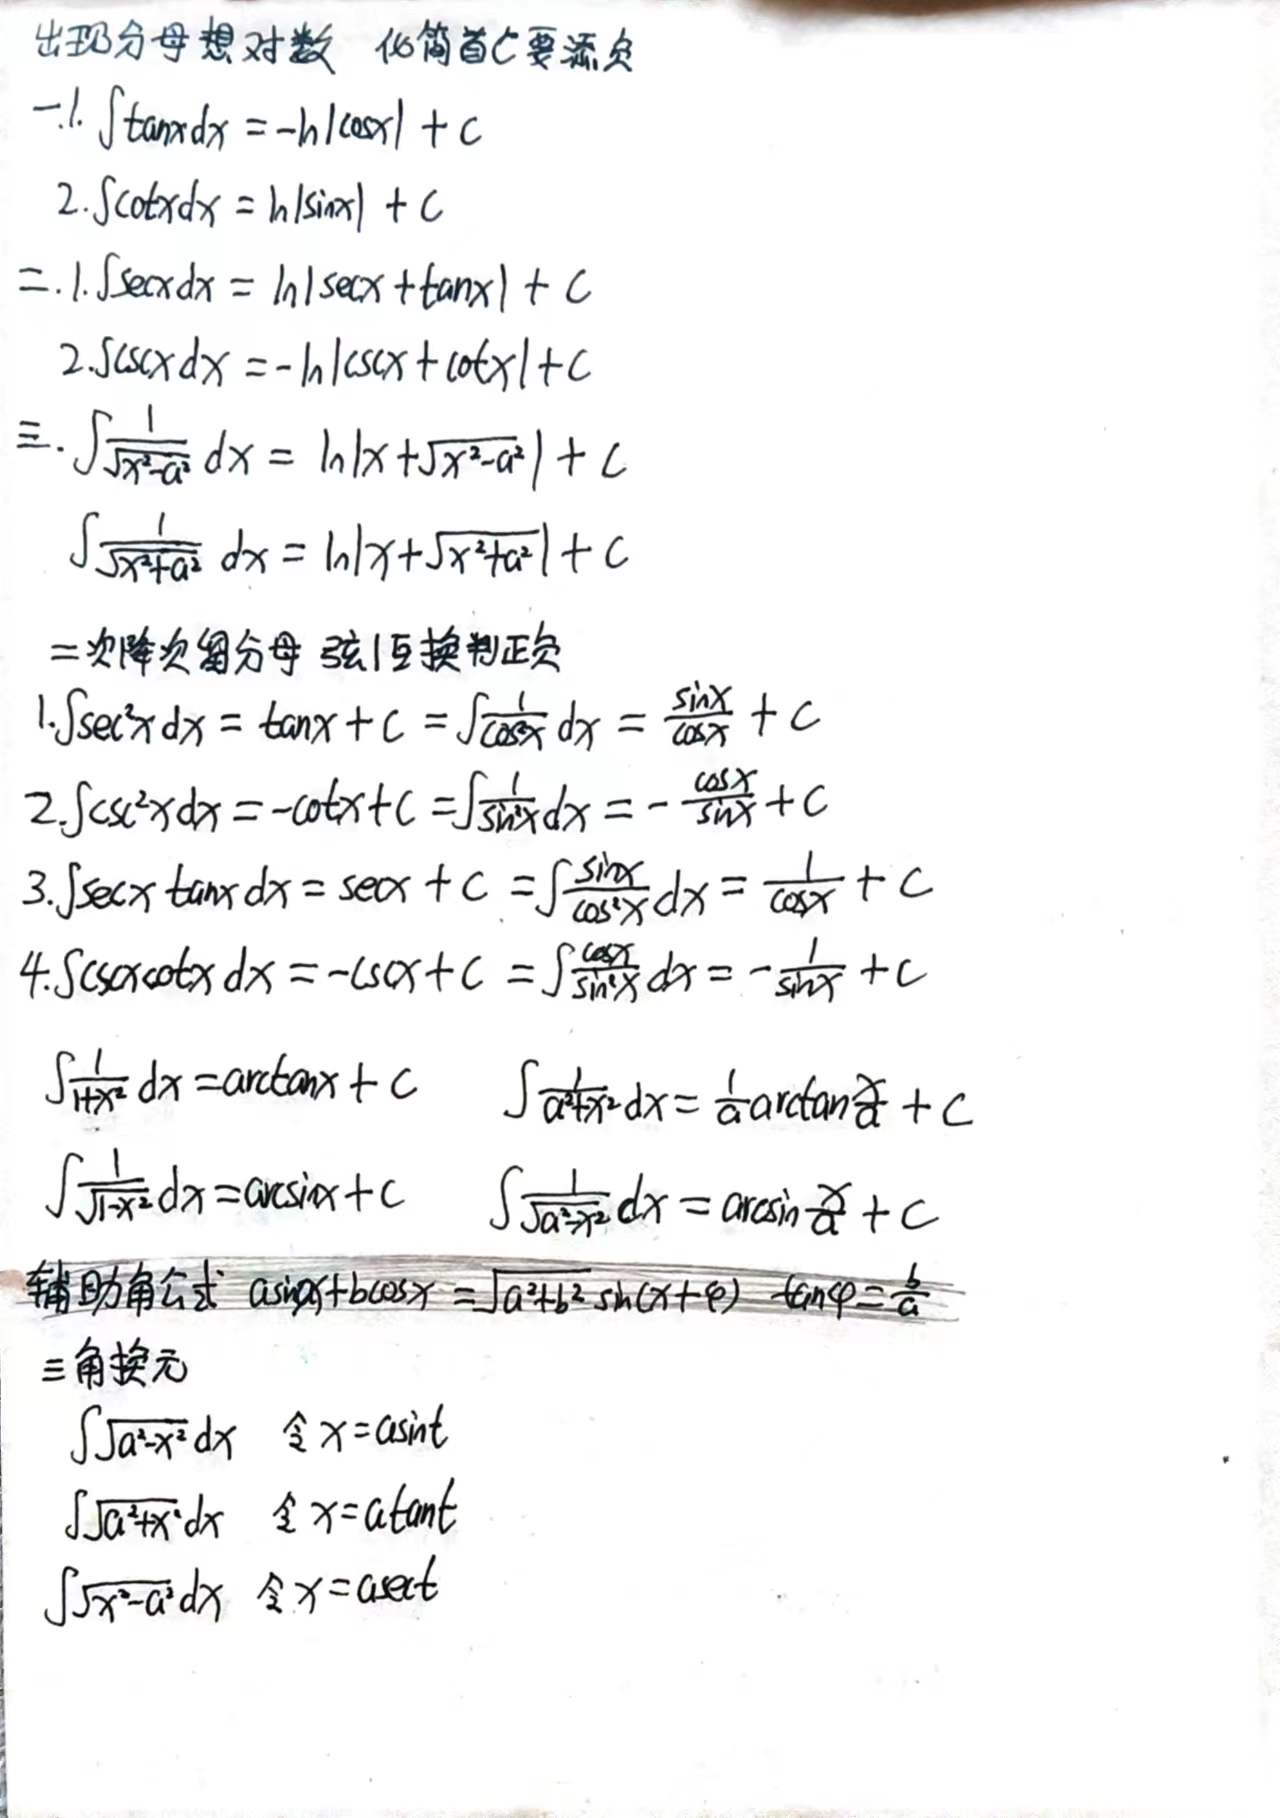 出现分母想对数 化简首C要添负
一.1. ∫tanxdx = -ln|cosx| + C
2. ∫cotxdx = ln|sinx| + C
二.1. ∫secxdx = ln|secx+tanx| + C
2. ∫cscxdx = -ln|cscx+cotx| + C
三. ∫1/√(x²-a²) dx = ln|x+√(x²-a²)| + C
∫1/√(x²+a²) dx = ln|x+√(x²+a²)| + C
二次降次留分母 弦1互换判正负
1. ∫sec²xdx = tanx + C = ∫1/cos²x dx = sinx/cosx + C
2. ∫csc²xdx = -cotx + C = ∫1/sin²x dx = -cosx/sinx + C
3. ∫secxtanxdx = secx + C = ∫sinx/cos²x dx = 1/cosx + C
4. ∫cscxcotxdx = -cscx + C = ∫cosx/sin²x dx = -1/sinx + C
∫1/(1+x²) dx = arctanx + C ∫1/(a²+x²) dx = 1/a arctan x/a + C
∫1/√(1-x²) dx = arcsinx + C ∫1/√(a²-x²) dx = arcsin x/a + C
辅助角公式 asinx+bcosx = √(a²+b²) sin(x+φ) tanφ = b/a
三角换元
∫√(a²-x²) dx 令x=asint
∫√(a²+x²) dx 令x=atant
∫√(x²-a²) dx 令x=asect